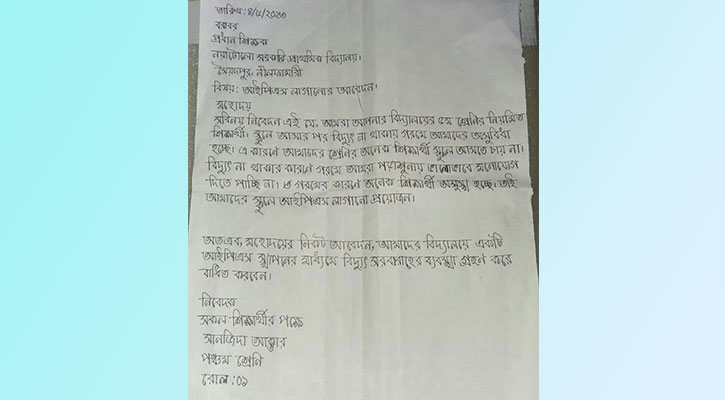 তারিখ: ৪/৬/২০২৩
বরাবর
প্রধান শিক্ষক
নয়াটোলা সরকারি প্রাথমিক বিদ্যালয়।
সৈয়দপুর, নীলফামারী
বিষয়: আইপিএস লাগানোর আবেদন।
মহোদয়
সবিনয় নিবেদন এই যে, আমরা আপনার বিদ্যালয়ের ৫ম শ্রেণির নিয়মিত
শিক্ষার্থী। স্কুলে আসার পর বিদ্যুৎ না থাকায় গরমে আমাদের অসুবিধা
হচ্ছে। এ কারণে আমাদের শ্রেণির অনেক শিক্ষার্থী স্কুলে আসতে চায় না।
বিদ্যুৎ না থাকার কারণে গরমে আমরা পড়াশুনায় ভালোভাবে মনোযোগ
দিতে পাচ্ছি না। এ গরমের কারণে অনেক শিক্ষার্থী অসুস্থ্য হচ্ছে। তাই
আমাদের স্কুলে আইপিএস লাগানো প্রয়োজন।
অতএব, মহোদয়ের নিকট আবেদন, আমাদের বিদ্যালয়ে একটি
আইপিএস স্থাপনের মাধ্যমে বিদ্যুৎ সরবরাহের ব্যবস্থা গ্রহণ করে
বাধিত করবেন।
নিবেদক
সকল শিক্ষার্থীর পক্ষে
আনজিদা আক্তার
পঞ্চম শ্রেণি
রোল: ০১